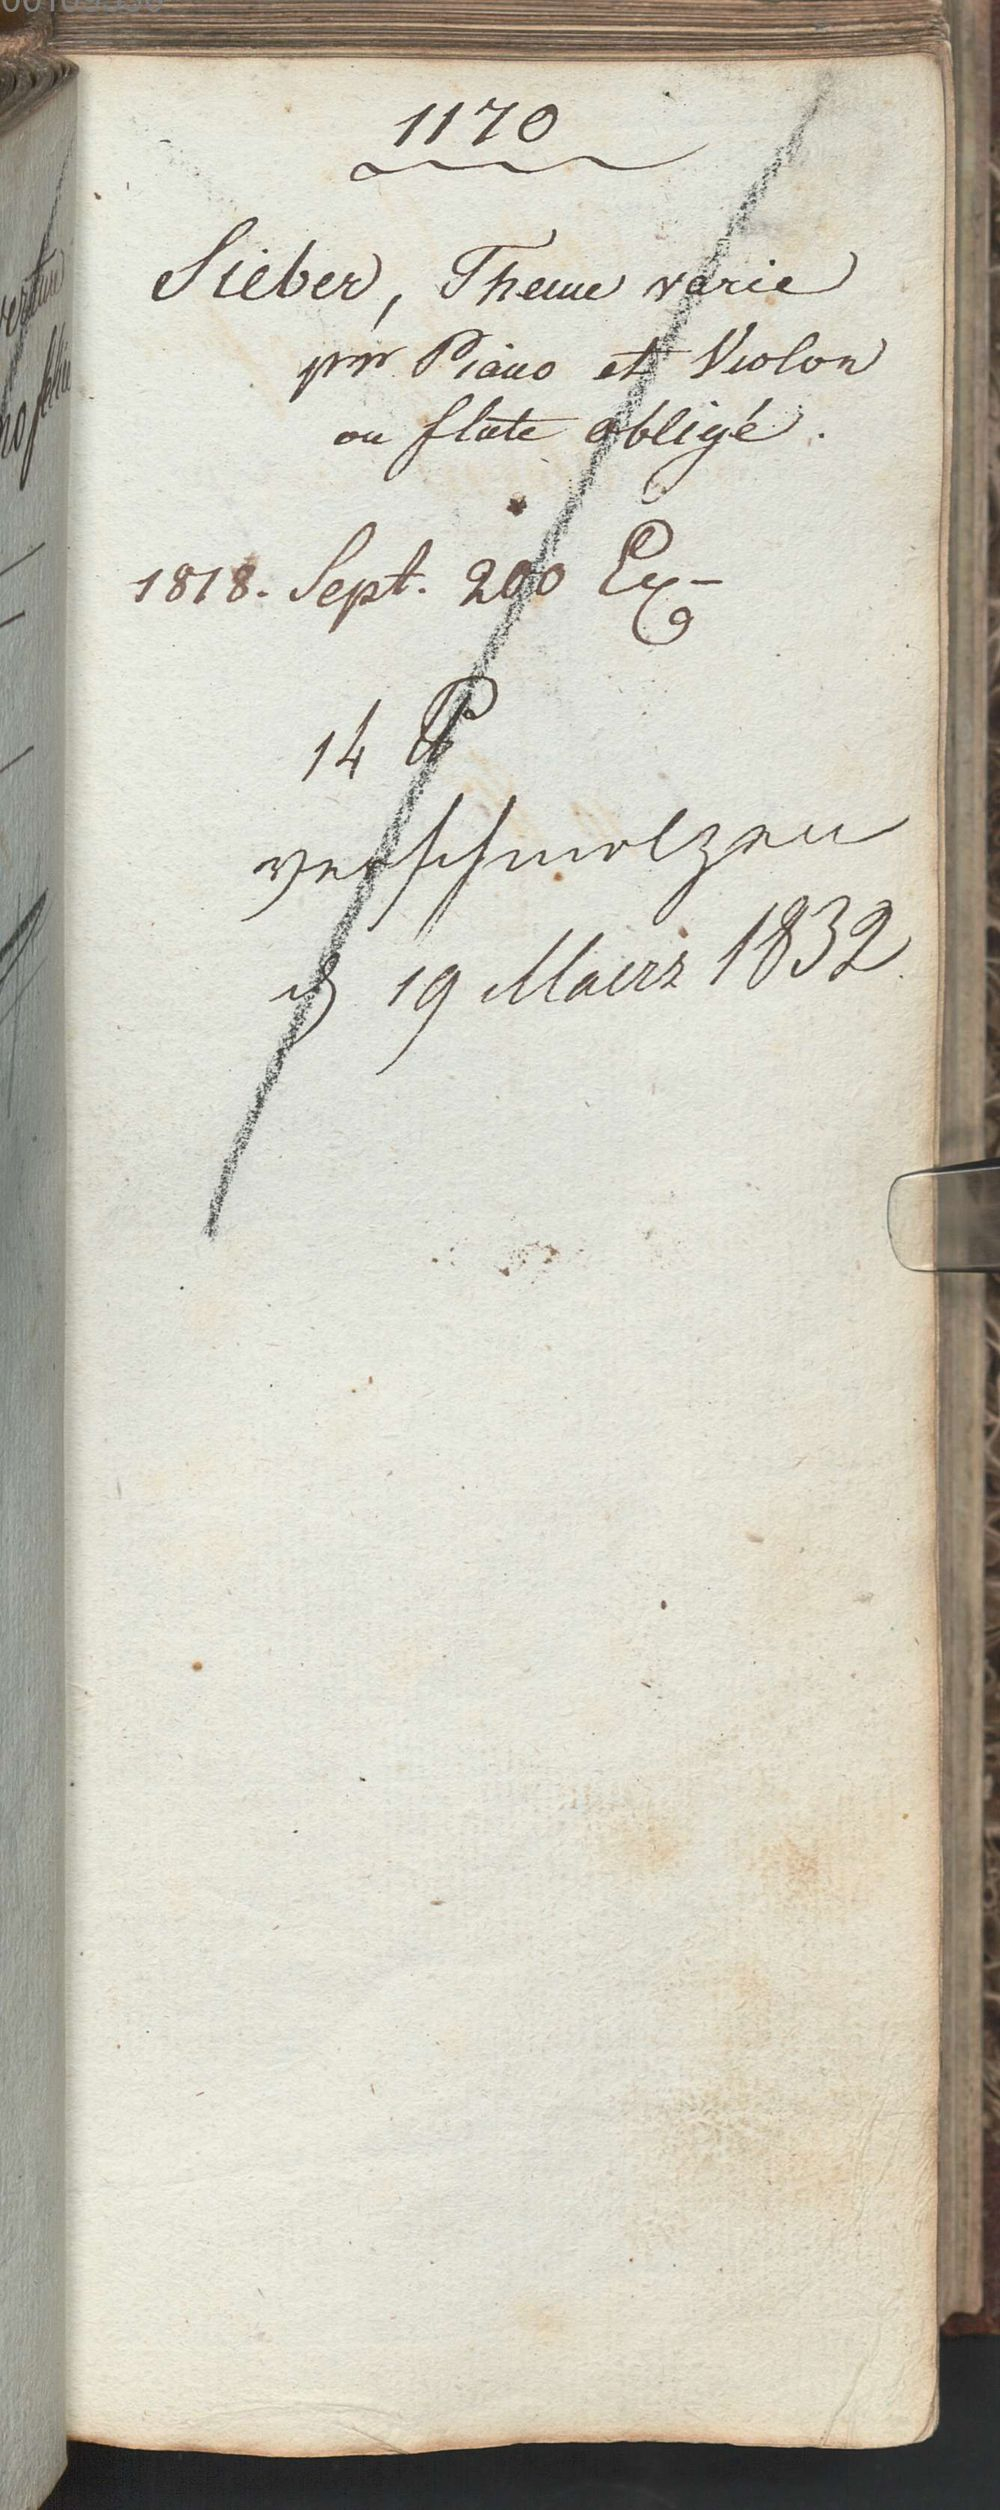 1170
Sieber, Theme varie
pour Piano et Violon
ou flute obligé.
1818. Sept. 200 Ex
14 P
verschmolzen
d 19 Maerz 1832